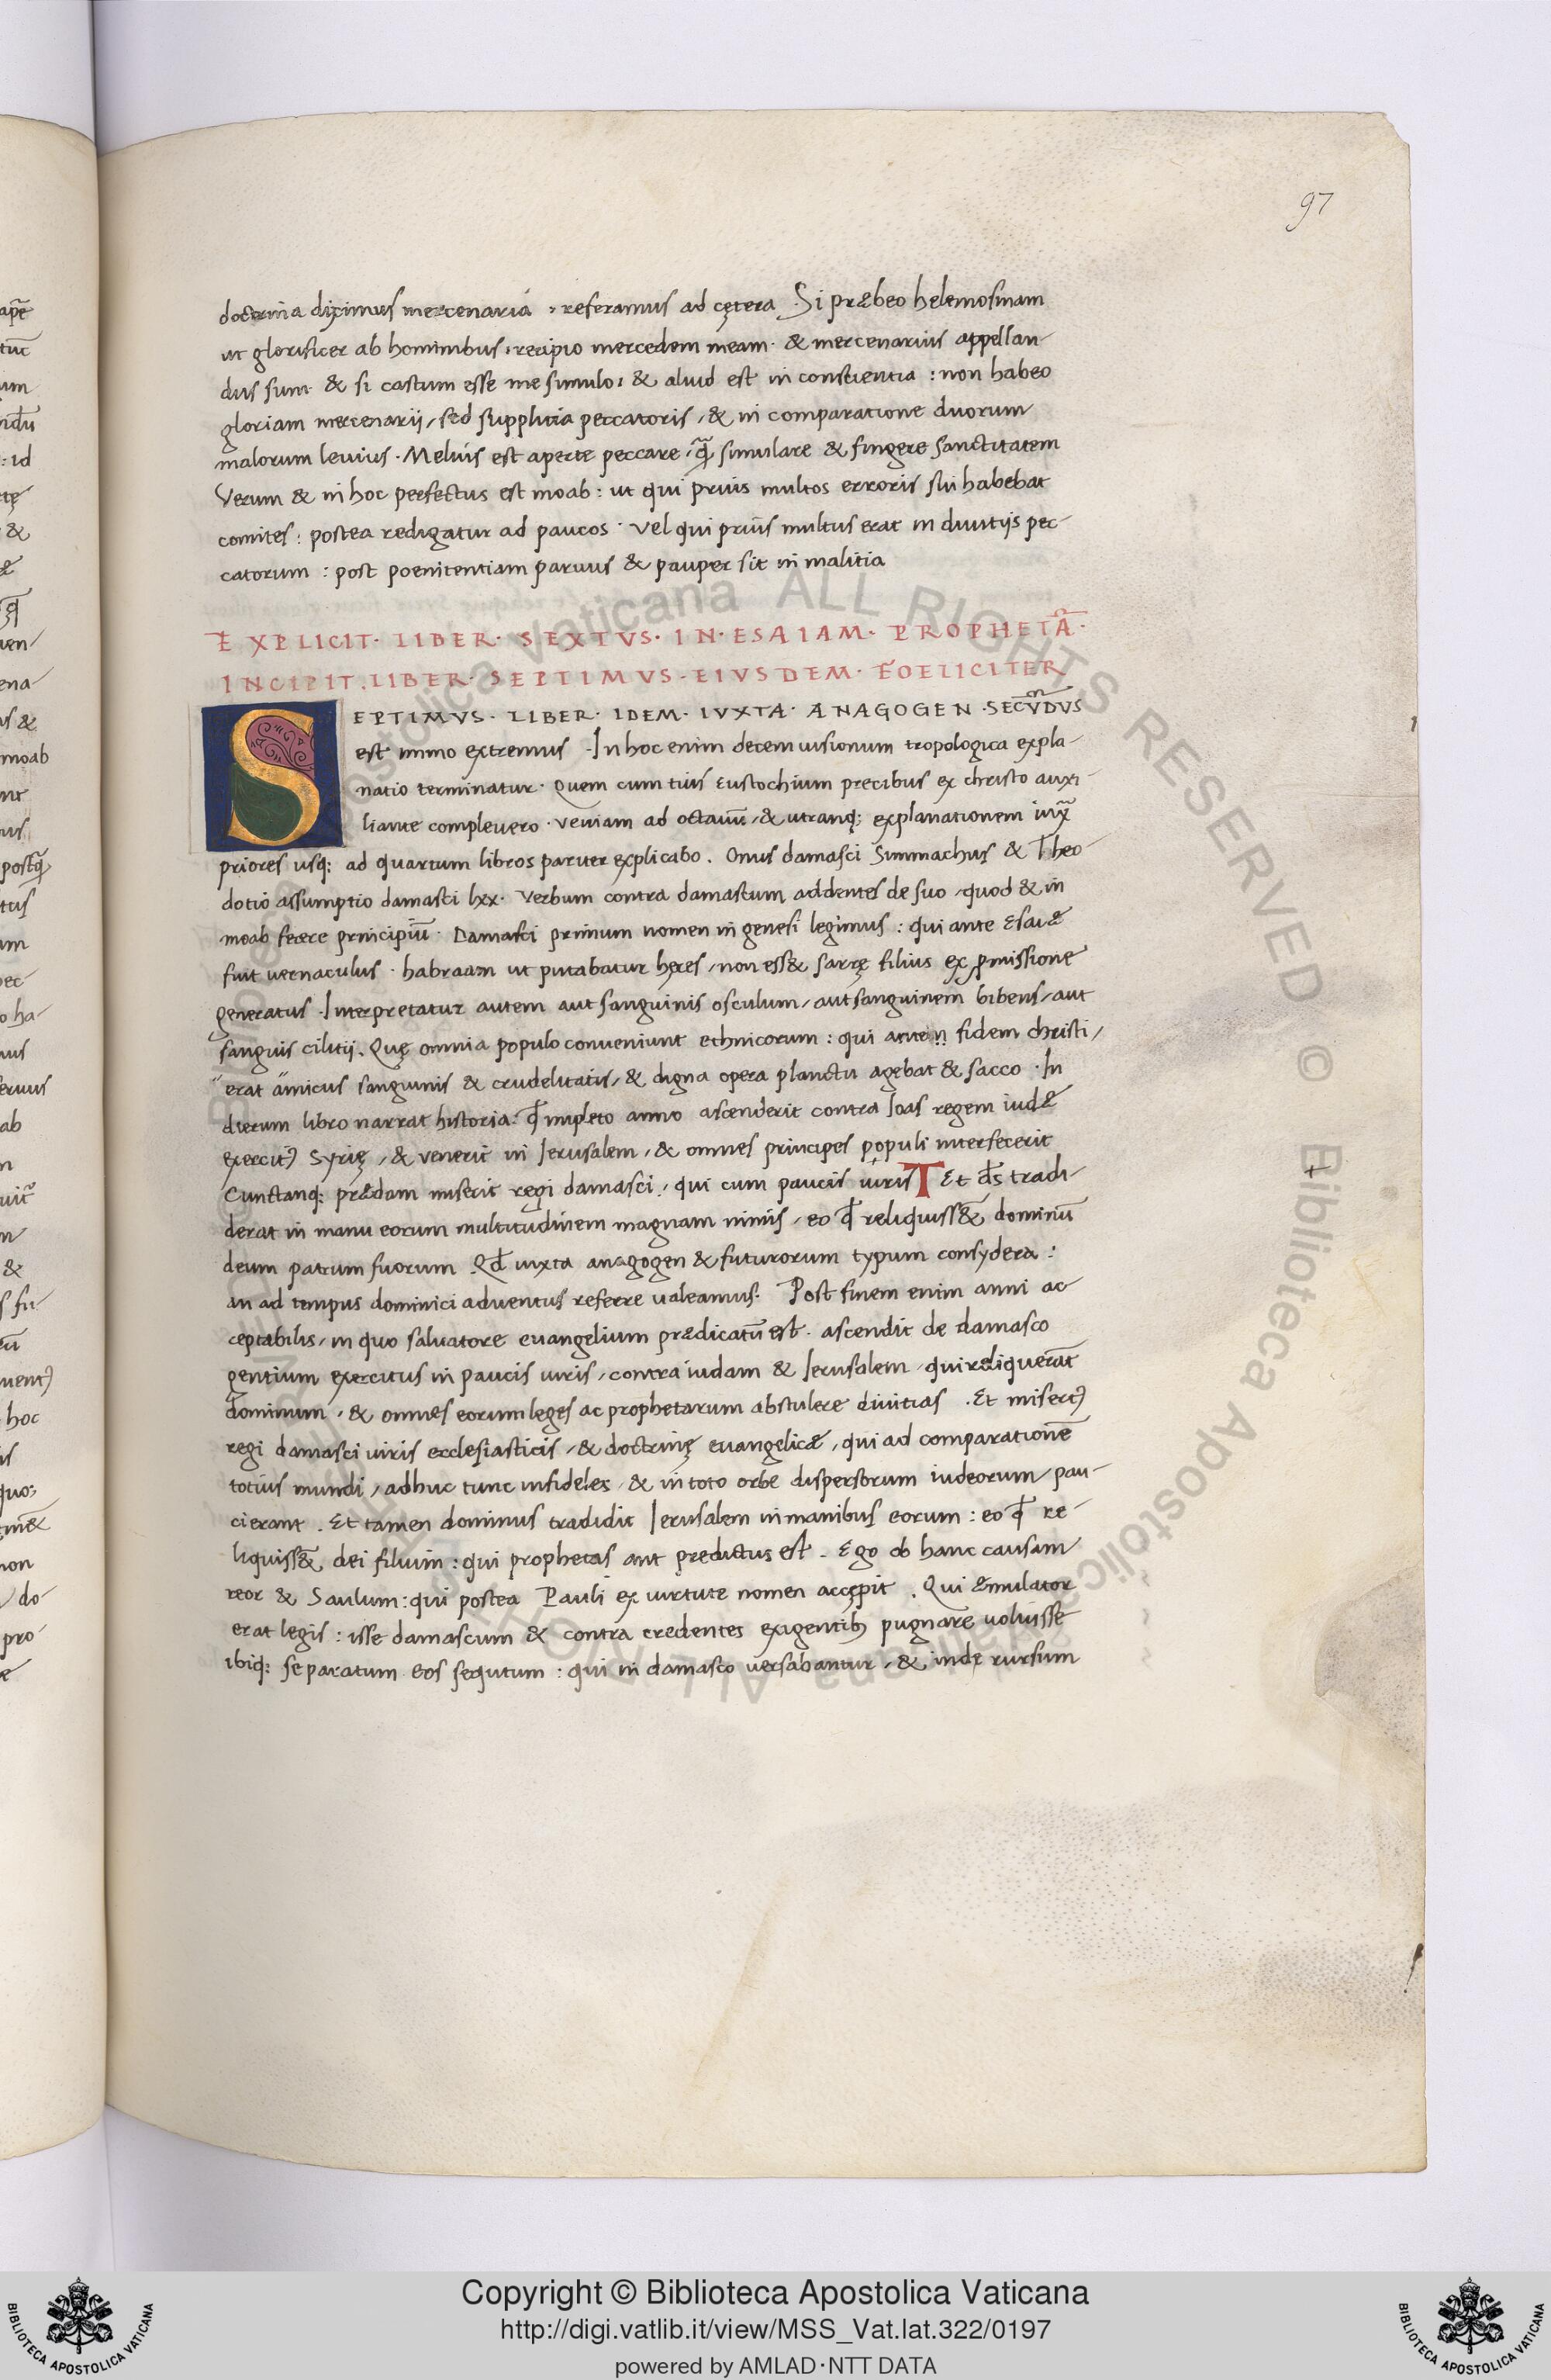 97
doctrina diximus mercenaria, referamus ad cętera. Si præbeo helemosinam
ut glorificer ab hominibus, recipio mercedem meam. & mercenarius appellan-
dus sum. & si castum esse me simulo, & aliud est in conscientia: non habeo
gloriam mercenarij, sed supplitia peccatoris, & in comparatione duorum
malorum levius. Melius est aperte peccare, q̃ simulare & fingere sanctitatem
Verum & in hoc perfectus est moab: ut qui prius multos erroris sui habebat
comites: postea redigatur ad paucos. Vel qui prius multus erat in divitijs pec-
catorum: post poenitentiam parvus & pauper sit in malitia
EXPLICIT. LIBER. SEXTVS. IN. ESAIAM. PROPHETÃ.
INCIPIT. LIBER. SEPTIMVS. EIVSDEM. FOELICITER
SEPTIMVS. LIBER. IDEM. IVXTA. ANAGOGEN. SECṼDVS
est immo extremus. In hoc enim decem visionum tropologica expla-
natio terminatur. Quem cum tuis Eustochium precibus ex christo auxi-
liante complevero. veniam ad octavũ, & utranq; explanationem iuxᷓ
priores usq; ad quartum libros pariter explicabo. Onus damasci Simmachus & Theo-
dotio assumptio damasci lxx. Verbum contra damascum addentes de suo, quod & in
moab fecere principiũ. Damasci primum nomen in genesi legimus: qui ante Esaiæ
fuit vernaculus. habraam ut putabatur heres, non ess& sarrę filius ex ꝓmissione
generatus. Interpretatur autem aut sanguinis osculum, aut sanguinem bibens, aut
sanguis cilitij. Quę omnia populo conveniunt ethnicorum: qui ante fidem christi,
erat amicus sanguinis & crudelitatis, & digna opera planctu agebat & sacco. In
dierum libro narrat historia. qđ impleto anno ascenderit contra Ioas regem iudæ
exercitꝰ Syrię, & venerit in Ierusalem, & omnes principes populi interfecerit
Cunctanq; prædam miserit regi damasci, qui cum paucis viris T Et dñs tradi-
derat in manu eorum multitudinem magnam nimis, eo qđ reliquiss&̃ dominũ
deum patrum suorum. Qđ iuxta anagogen & futurorum typum consydera:
an ad tempus dominici adventus referre valeamus. Post finem enim anni ac-
ceptabilis, in quo salvatore evangelium prædicatũ est. ascendit de damasco
gentium exercitus in paucis viris, contra iudam & Ierusalem, qui reliquerãt
dominum, & omnes eorum leges ac prophetarum abstulere divitias. Et misertꝰ
regi damasci viris ecclesiasticis, & doctrinę evangelicæ, qui ad comparationẽ
totius mundi, adhuc tunc infideles, & in toto orbe dispersorum iudeorum, pau-
ci erant. Et tamen dominus tradidit Ierusalem in manibus eorum: eo qđ re-
liquiss&̃ dei filium: qui prophetas ant predictus est. Ego ob hanc causam
reor & Saulum: qui postea Pauli ex virtute nomen accępit. Qui æmulator
erat legis: isse damascum & contra credentes exigentibꝫ pugnare voluisse
ibiq; separatum eos sequtum: qui in damasco versabantur, & inde rursum
Copyright © Biblioteca Apostolica Vaticana
http://digi.vatlib.it/view/MSS_Vat.lat.322/0197
powered by AMLAD·NTT DATA